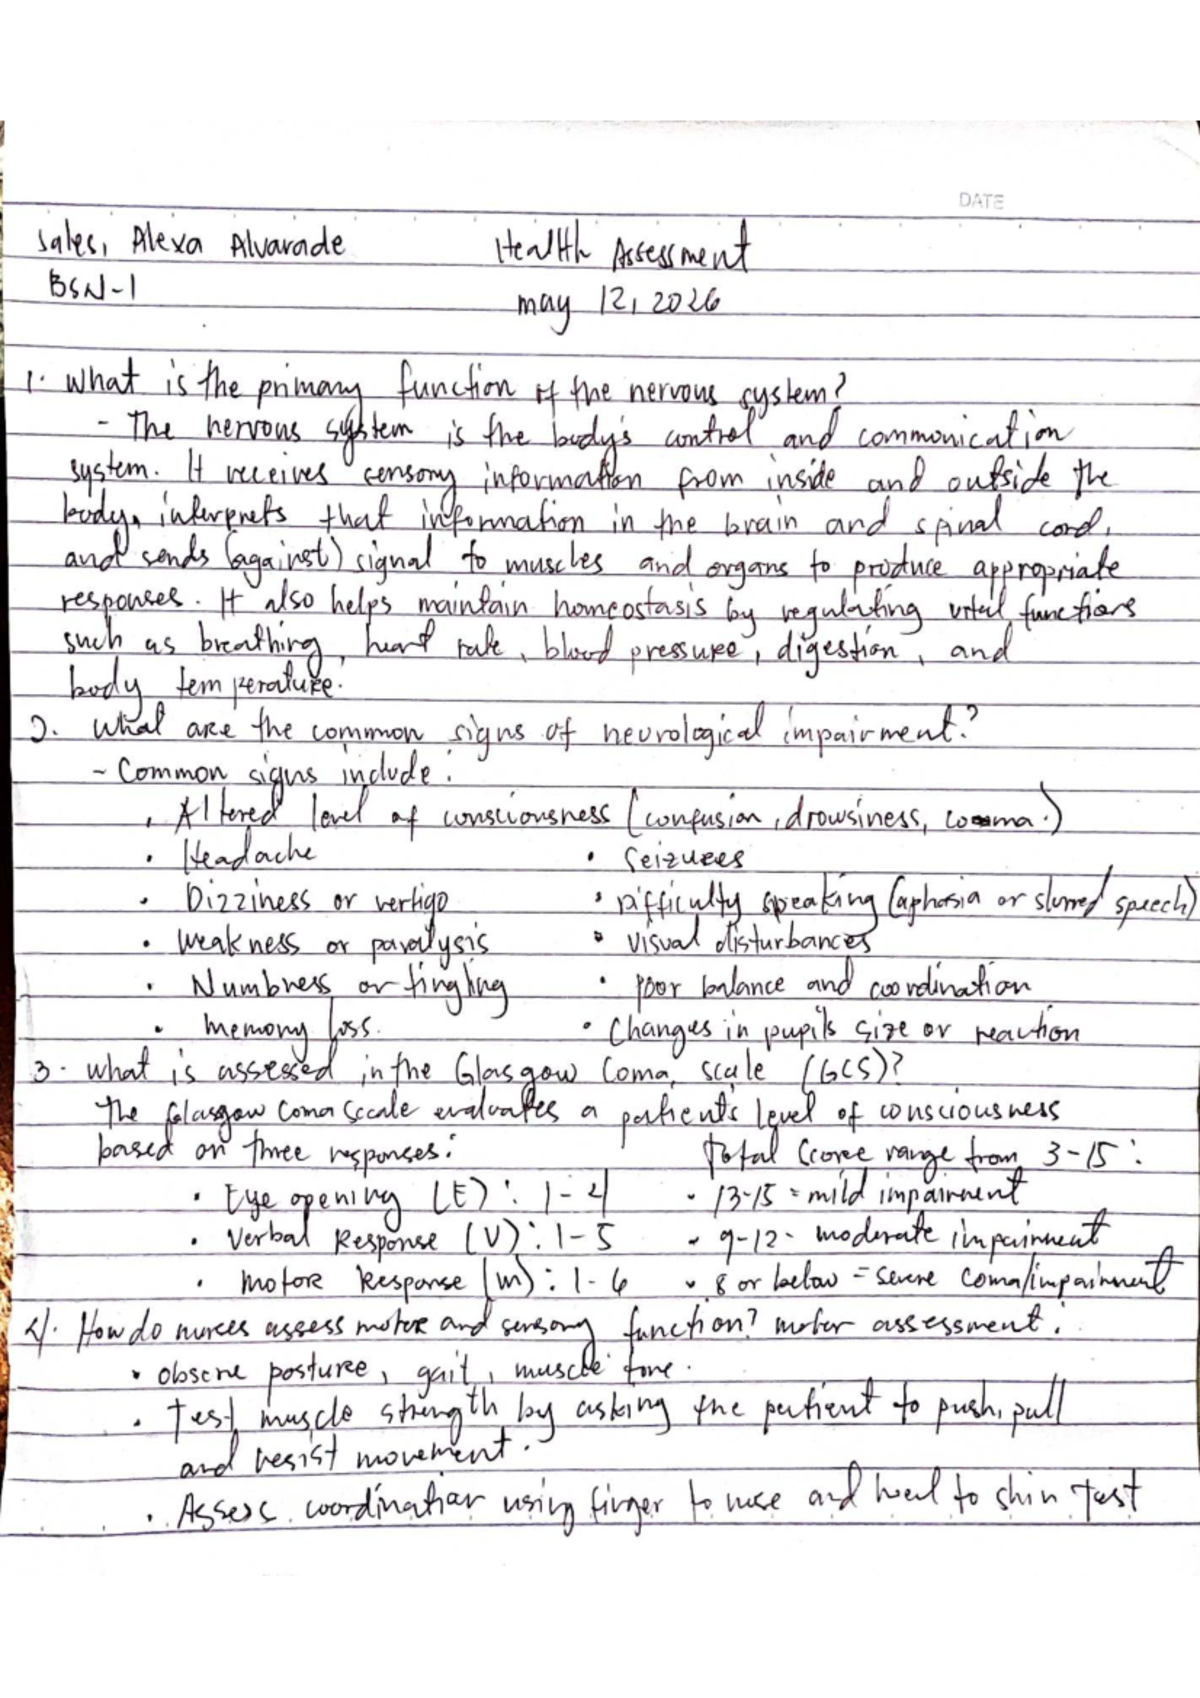 DATE
Sales, Alexa Alvarade Health Assessment
BSN-1 may 12, 2026
1. What is the primary function of the nervous system?
- The nervous system is the body's control and communication
system. It receives sensory information from inside and outside the
body, interprets that information in the brain and spinal cord,
and sends (against) signal to muscles and organs to produce appropriate
responses. It also helps maintain homeostasis by regulating vital functions
such as breathing, heart rate, blood pressure, digestion, and
body temperature.
2. What are the common signs of neurological impairment?
- Common signs include:
• Altered level of consciousness (confusion, drowsiness, coma.)
• Headache • Seizures
• Dizziness or vertigo • Difficulty speaking (aphasia or slurred speech)
• Weakness or paralysis • Visual disturbances
• Numbness or tingling • poor balance and coordination
• Memory loss. • Changes in pupils size or reaction
3. What is assessed in the Glasgow Coma, scale (GCS)?
The Glasgow Coma Sccale evaluates a patient's level of consciousness
based on three responses: Total Score range from 3-15:
• Eye opening (E): 1-4 • 13-15 = mild impairment
• Verbal Response (V): 1-5 • 9-12 - moderate impairment
• Motor Response (m): 1-6 • 8 or below = severe coma/impairment
4. How do nurses assess motor and sensory function? motor assessment:
• observe posture, gait, muscle tone.
• Test muscle strength by asking the patient to push, pull
and resist movement.
• Assess coordination using finger to nose and heel to shin test